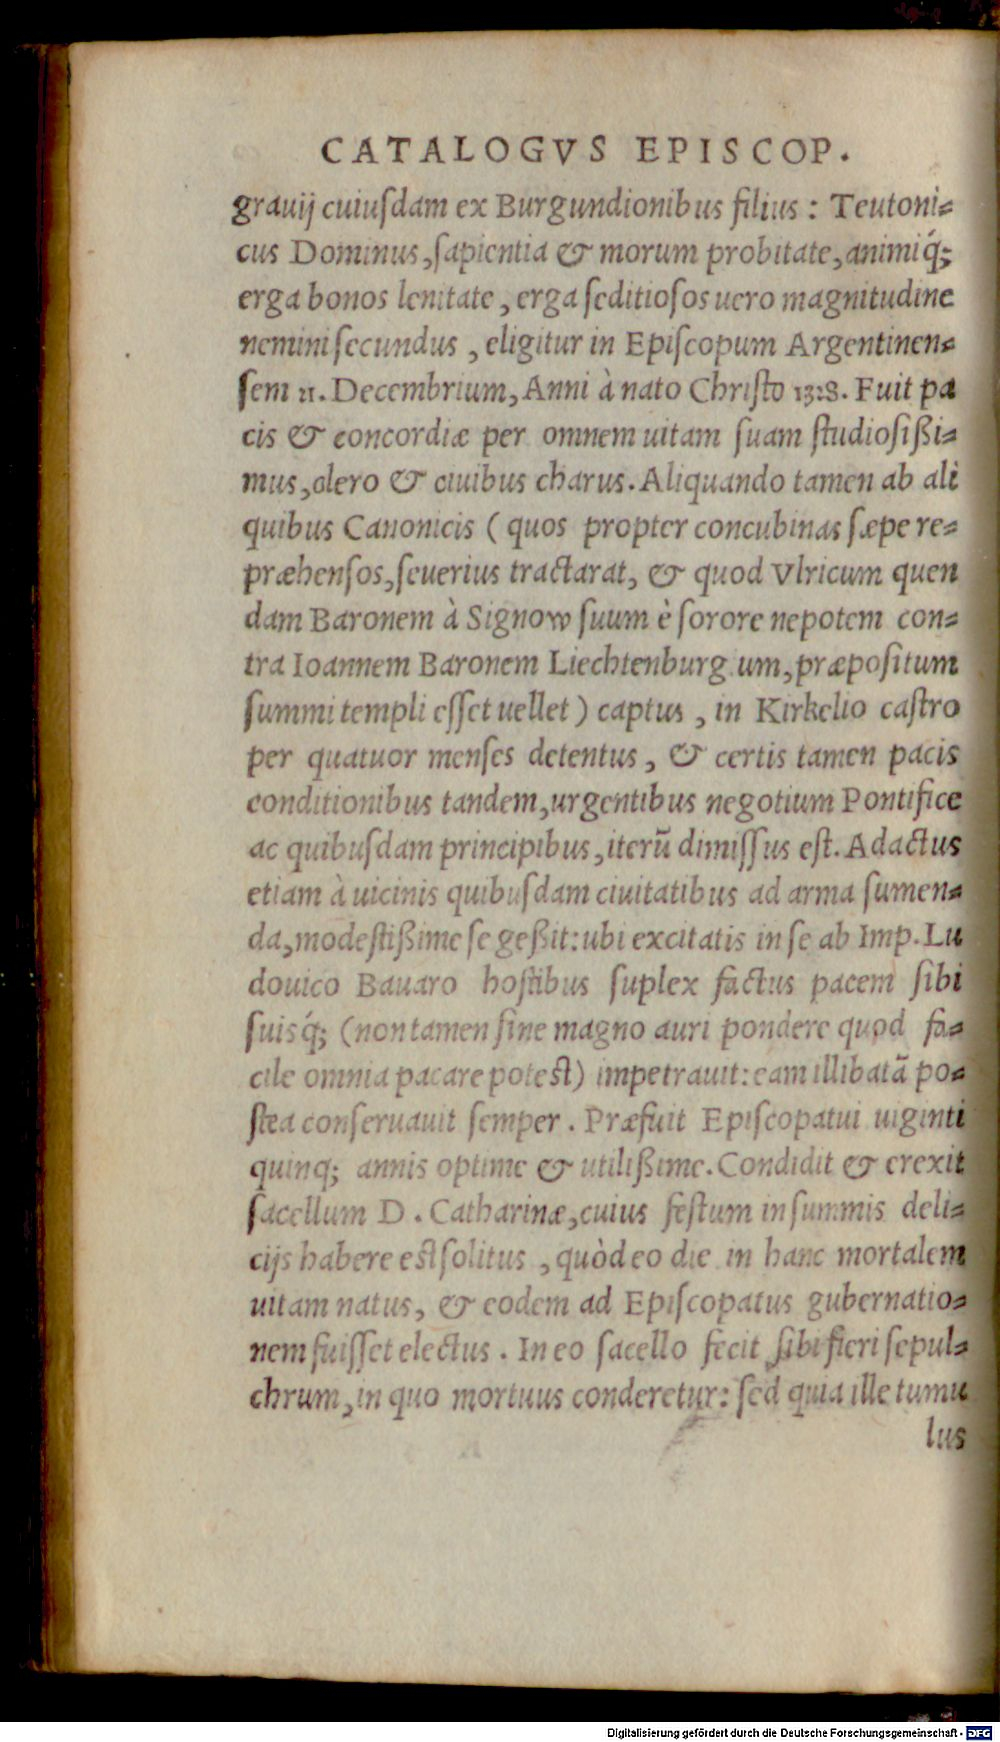 CATALOGVS EPISCOP.
grauij cuiuſdam ex Burgundionibus filius : Teutoni-
cus Dominus, ſapientia & morum probitate, animiq́;
erga bonos lenitate, erga ſeditioſos uero magnitudine
nemini ſecundus, eligitur in Epiſcopum Argentinen-
ſem 21. Decembrium, Anni à nato Chriſto 1328. Fuit pa
cis & concordiæ per omnem uitam ſuam ſtudioſißi-
mus, clero & ciuibus charus. Aliquando tamen ab ali
quibus Canonicis ( quos propter concubinas ſæpe re-
præhenſos, ſeuerius tractarat, & quod Vlricum quen
dam Baronem à Signow ſuum è ſorore nepotem con-
tra Ioannem Baronem Liechtenburgium, præpoſitum
ſummi templi eſſet uellet) captus, in Kirkelio caſtro
per quatuor menſes detentus, & certis tamen pacis
conditionibus tandem, urgentibus negotium Pontifice
ac quibuſdam principibus, iterũ dimiſſus eſt. Adactus
etiam à uicinis quibuſdam ciuitatibus ad arma ſumen-
da, modeſtißime ſe geßit: ubi excitatis in ſe ab Imp. Lu
douico Bauaro hoſtibus ſuplex factus pacem ſibi
ſuisq́; (non tamen ſine magno auri pondere quod fa-
cile omnia pacare poteſt) impetrauit: eam illibatã po-
ſtea conſeruauit ſemper. Præfuit Epiſcopatui uiginti
quinq; annis optime & utilißime. Condidit & erexit
ſacellum D. Catharinæ, cuius feſtum in ſummis deli-
cijs habere eſt ſolitus, quòd eo die in hanc mortalem
uitam natus, & eodem ad Epiſcopatus gubernatio-
nem fuiſſet electus. In eo ſacello fecit ſibi fieri ſepul-
chrum, in quo mortuus conderetur: ſed quia ille tumu
lus
Digitalisierung gefördert durch die Deutsche Forschungsgemeinschaft - DFG